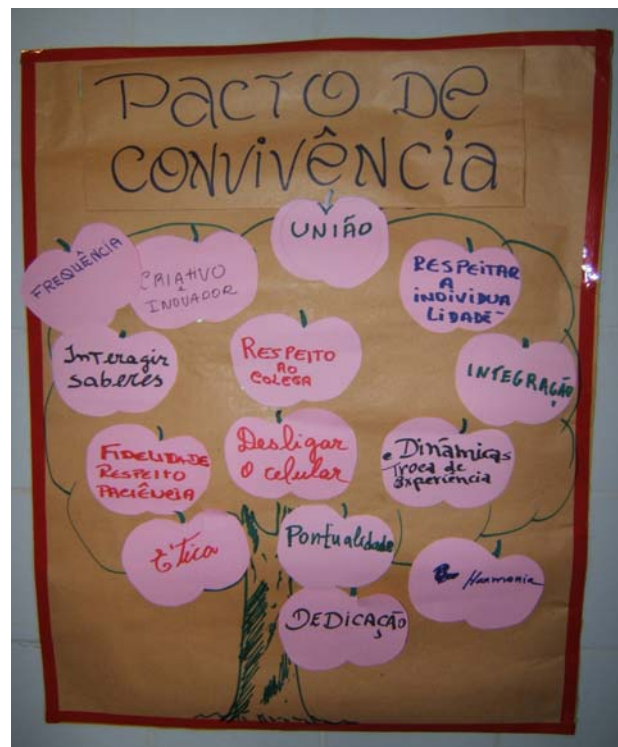 PACTO DE
CONVIVÊNCIA
UNIÃO
FREQUÊNCIA
CRIATIVO
E
INOVADOR
RESPEITAR
A
INDIVIDUA
LIDADE
InTeragir
saberes
RESPEITO
AO
COLEGA
INTEGRAÇÃO
FIDELIDADE
RESPEITO
PACIÊNCIA
Desligar
O celular
e Dinâmicas
Troca de
Experiência
É'tica
Pontualidade
Harmonia
DEDICAÇÃO